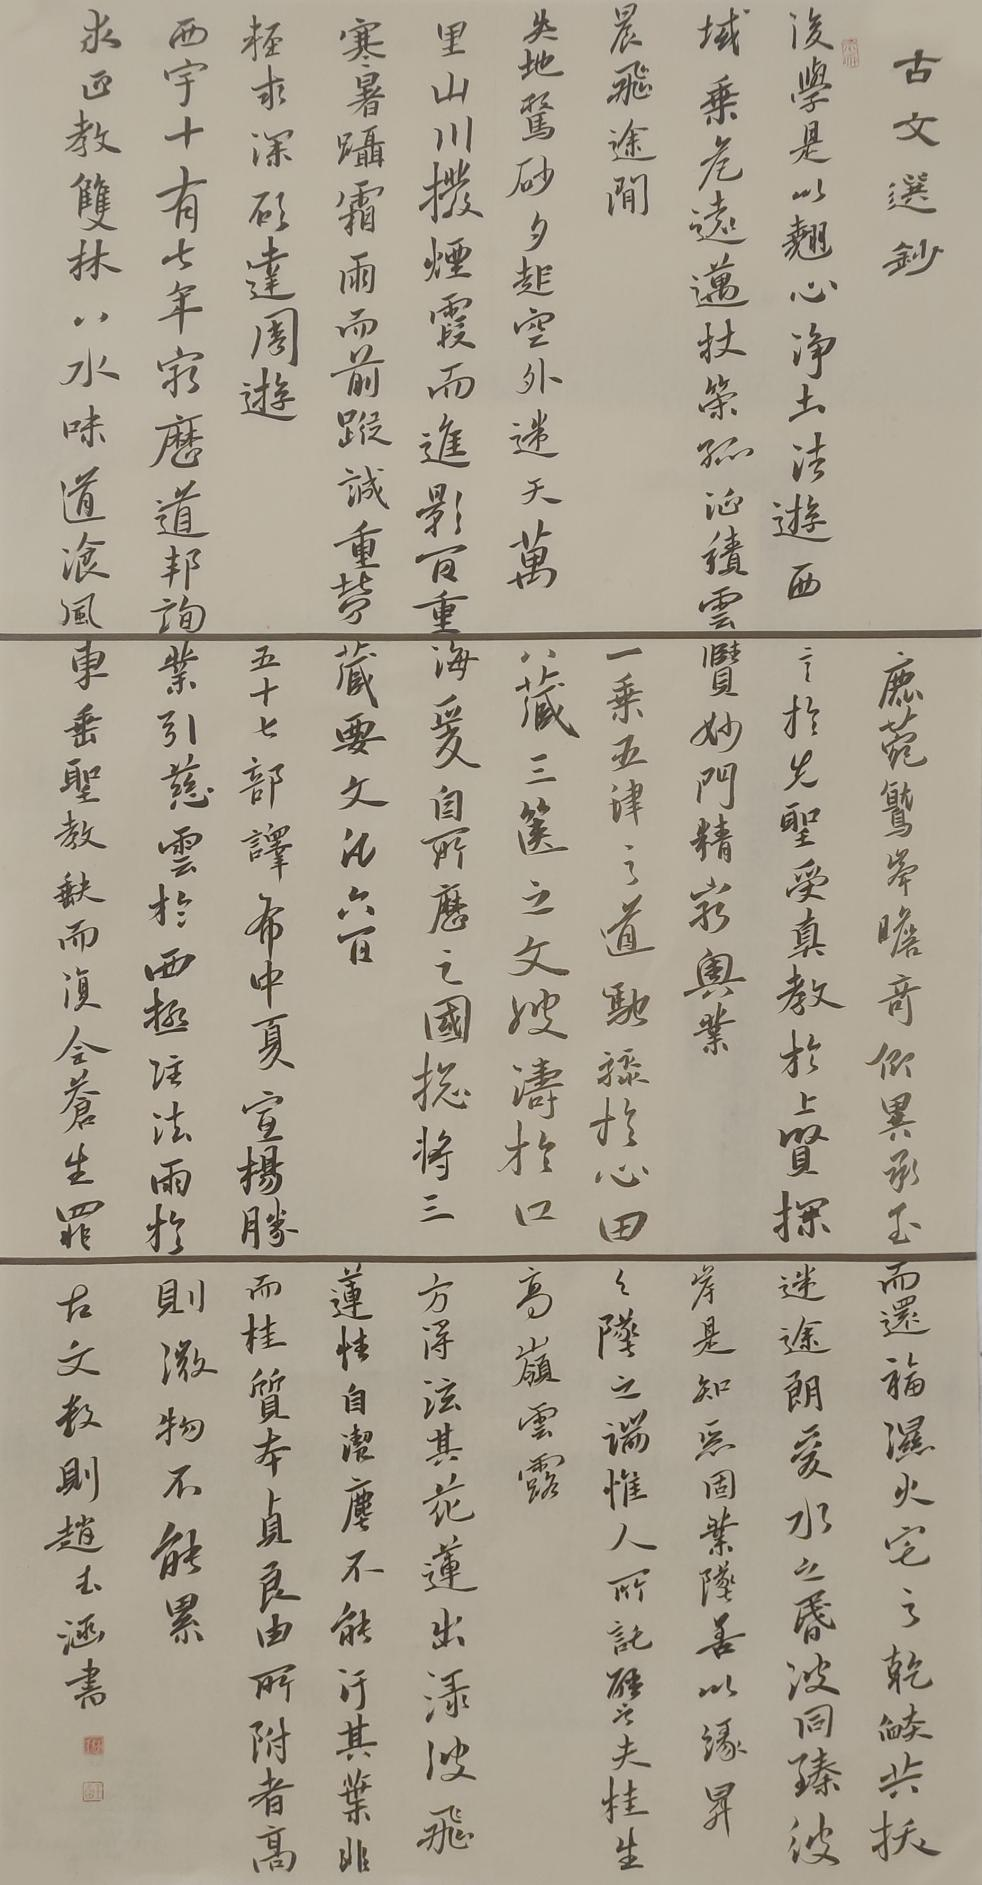 古文選鈔
後學是以翹心淨土法遊西
域乘危遠邁杖策孤征積雪
晨飛途間
失地驚砂夕起空外迷天萬
里山川撥煙霞而進影百重
寒暑躡霜雨而前蹤誠重勞
輕求深願達周遊
西宇十有七年窮歷道邦詢
求正教雙林八水味道飡風
鹿菀鷲峯瞻奇仰異承至
言於先聖受真教於上賢探
賾妙門精窮奧業
一乘五律之道馳驟於心田
八藏三篋之文波濤於口
海爰自所歷之國總將三
藏要文凡六百
五十七部譯布中夏宣揚勝
業引慈雲於西極注法雨於
東垂聖教缺而復全蒼生罪
而還福濕火宅之乾焰共拔
迷途朗愛水之昏波同臻彼
岸是知惡因業墜善以緣昇
々墜之端惟人所託譬之夫桂生
高嶺雲露
方得泫其花蓮出淥波飛
蓮性自潔塵不能汙其葉非
而桂質本貞良由所附者高
則微物不能累
古文數則趙玉涵書